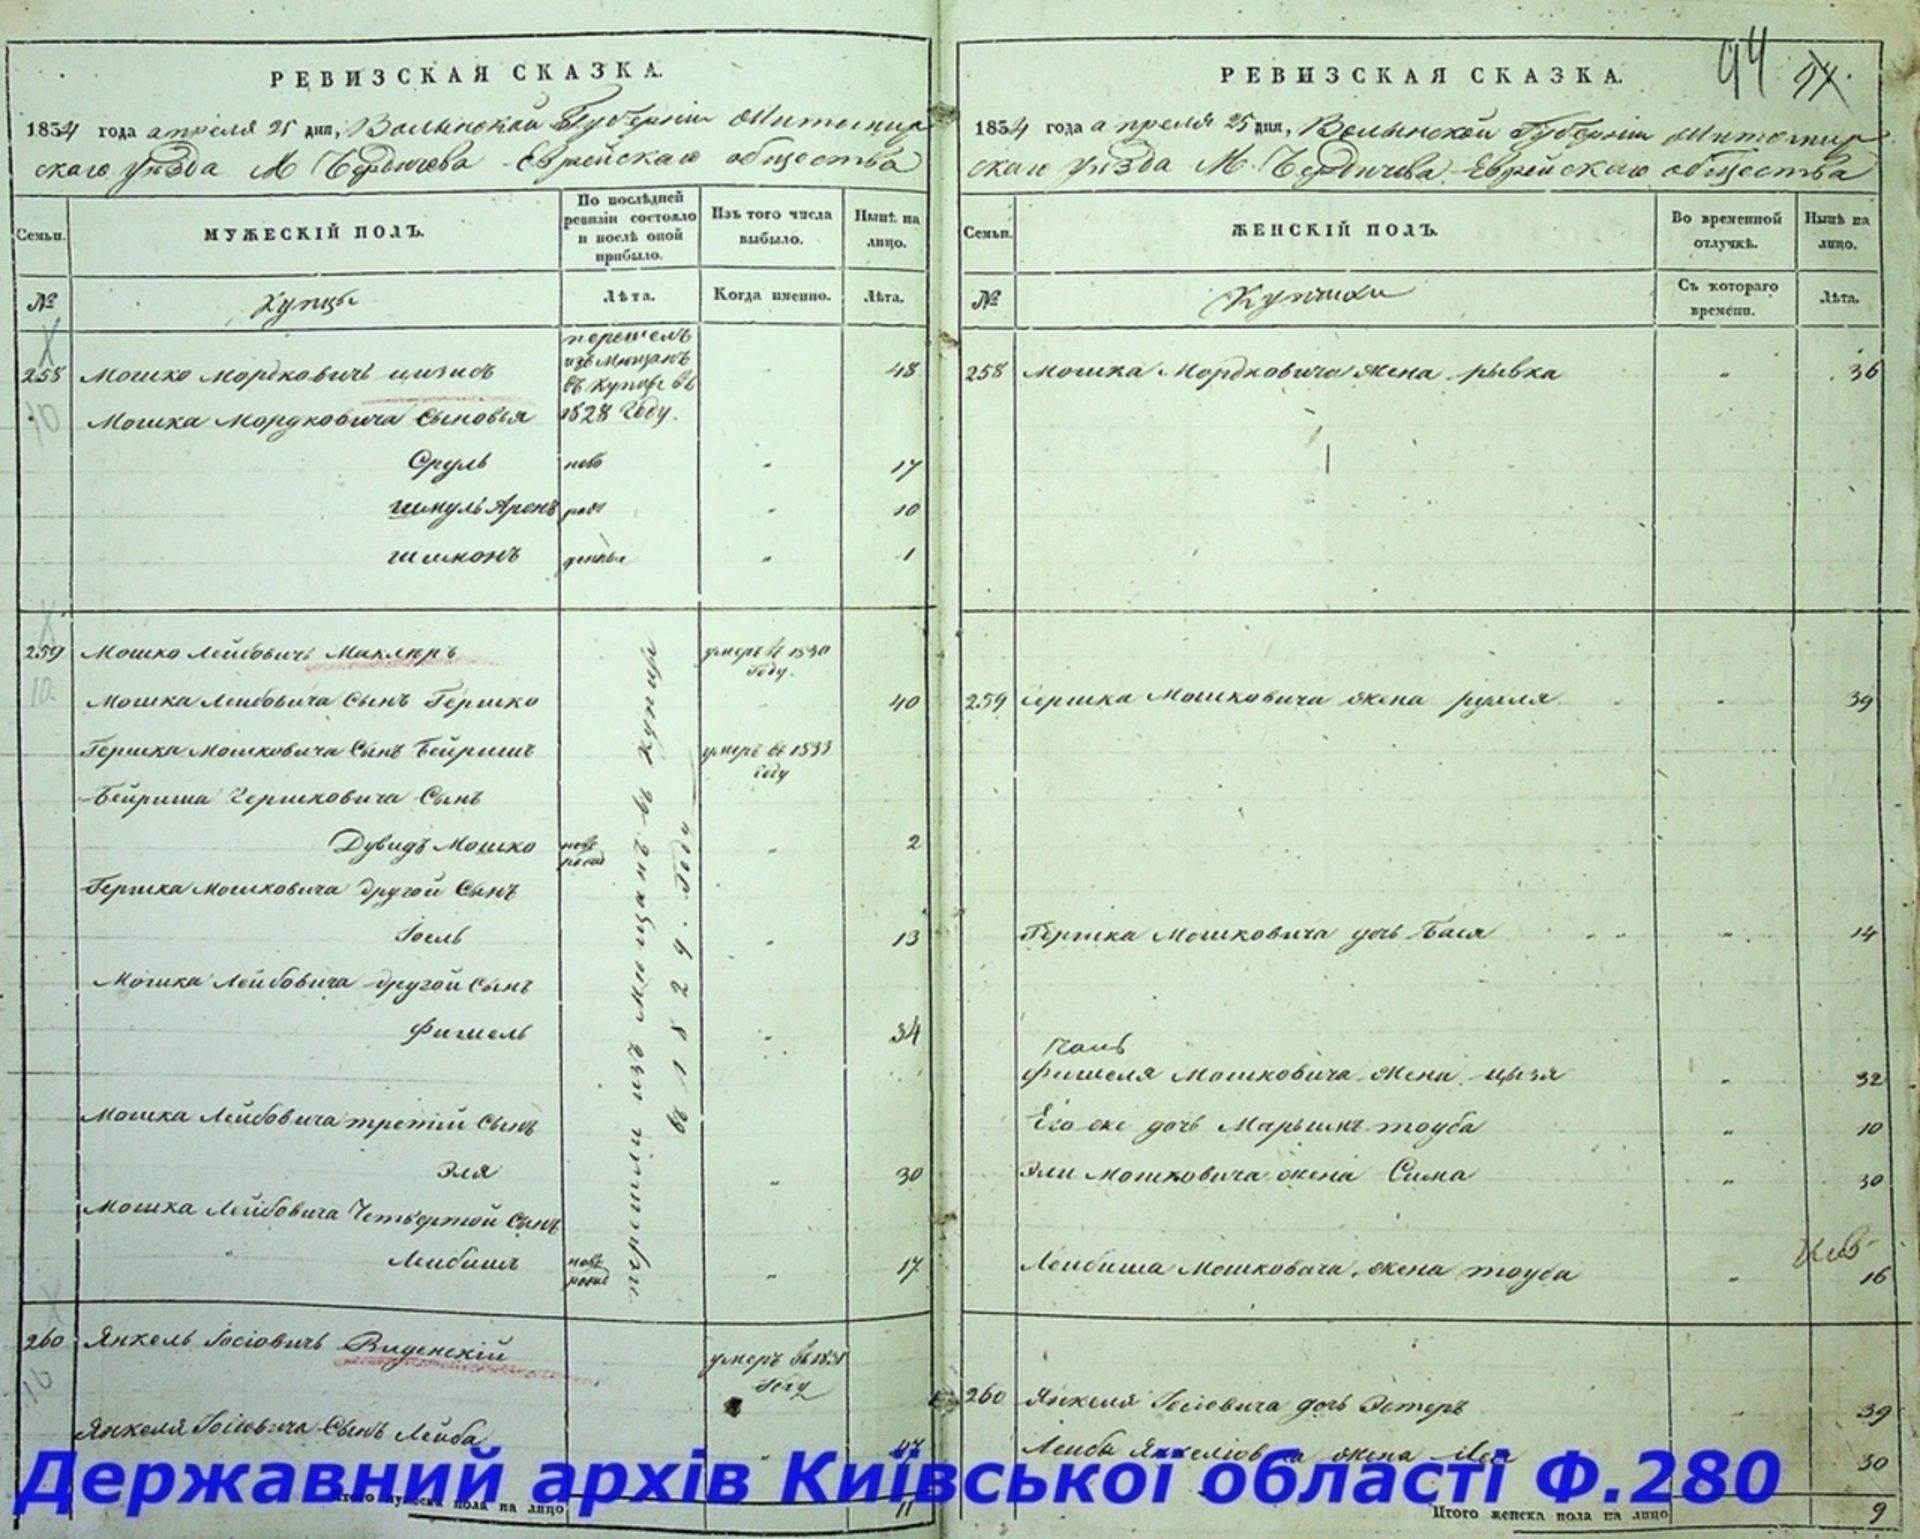 94
РЕВИЗСКАЯ СКАЗКА.
1834 года апреля 25 дня, Волынской Губерніи Житомир
скаго уѣзда М Бердичева Еврейскаго общества
Семьи.
МУЖЕСКІЙ ПОЛЪ.
По послѣдней ревизіи состояло и послѣ оной прибыло.
Изъ того числа выбыло.
Нынѣ на лицо.
№
Купцы
Лѣта.
Когда именно.
Лѣта.
перешелъ
изъ мѣщанъ
въ купцы въ
1828 Году.
258 Мошко Мордковичъ 48
Мошка Мордковича Сыновья
Сруль ново 17
Шмуль Аронъ рож 10
Шимонъ денные 1
259 Мошко Лейбовичъ Маклеръ умеръ въ 1830 Году.
10.
Мошка Лейбовича Сынъ Гершко 40
Гершка Мошковича Сынъ Бейришъ умеръ въ 1833 Году
Бейриша Гершковича Сынъ
Дувидъ Мошко ново рожд 2
Гершка Мошковича другой Сынъ
Іосль 13
Мошка Лейбовича другой Сынъ
Фишель 34
Мошка Лейбовича третій Сынъ
Эля 30
Мошка Лейбовича Четвертой Сынъ
Лейбишъ ново рожд 17
перешли изъ мѣщанъ въ купцы
въ 1829. Году
260 Янкель Іосіовичъ Виденскій умеръ въ 1831 Году
16
Янкеля Іосіовича Сынъ Лейба 47
Итого мужеска пола на лицо 11
РЕВИЗСКАЯ СКАЗКА.
1834 года апреля 25 дня, Волынской Губерніи Житомир
скаго уѣзда М. Бердичева Еврейскаго общества
Семьи.
ЖЕНСКІЙ ПОЛЪ.
Во временной отлучкѣ.
Нынѣ на лицо.
№
Купчихи
Съ котораго времени.
Лѣта.
258 Мошка Мордковича жена рывка 36
259 Гершка Мошковича жена рухля 39
Гершка Мошковича дочь Бася 14
Фишеля Мошковича жена цызя 32
Его же дочь Марьимъ тоуба 10
Эли Мошковича жена Сима 30
Лейбиша Мошковича жена тоуба 16
260 Янкеля Іосіовича дочь Эстеръ 39
Лейбы Янкеліовича жена Лея 30
Итого женска пола на лицо 9
Державний архів Київської області Ф.280